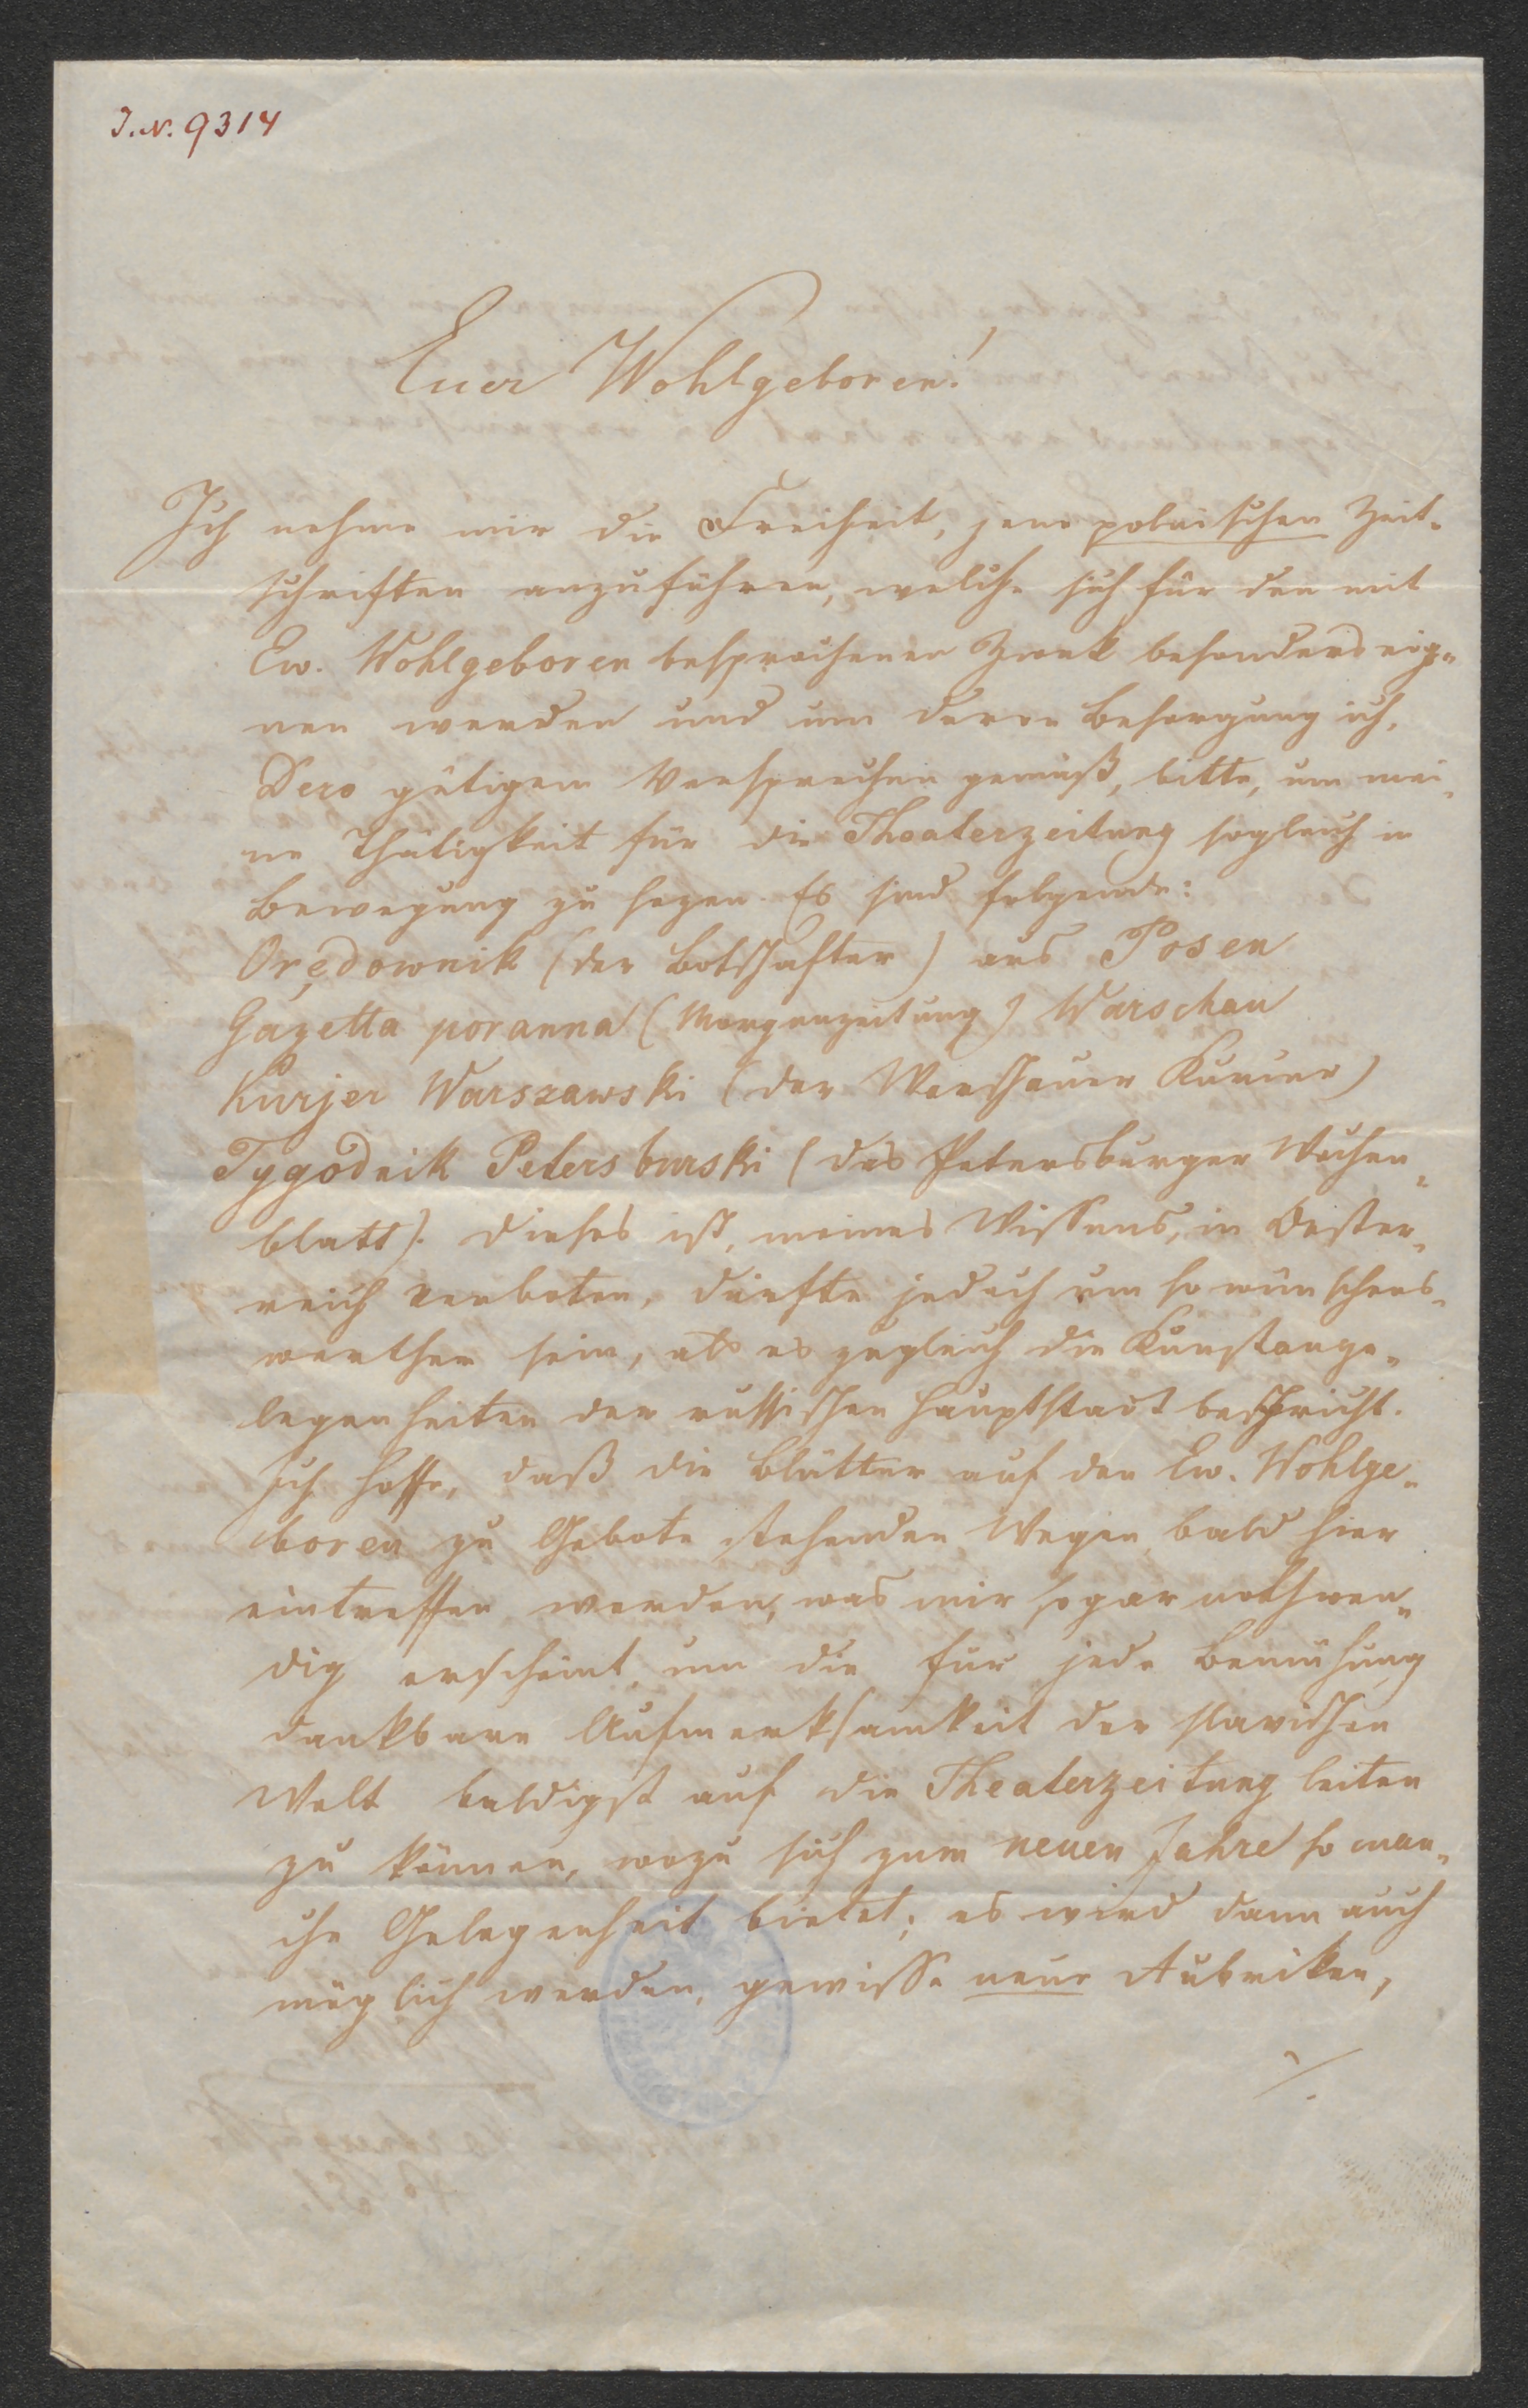 J. N. 9314
Euer Wohlgeboren!
Ich nehme mir die Freiheit, jene polnischen Zeit-
schriften anzuführen, welche sich für den mit
Ew. Wohlgeboren besprochenen Zwek besonders eig-
nen werden und um deren Besorgung ich,
Dero gütigem Versprechen gemäß, bitte, um mei-
ne Thätigkeit für die Theaterzeitung sogleich in
Bewegung zu sezen. Es sind folgende:
Orędownik (der Botschafter) aus Posen
Gazetta poranna (Morgenzeitung) Warschau
Kurjer Warszawski (der Warschauer Kurier)
Tygodnik Petersburski (das Petersburger Wochen-
blatt). Dieses ist, meines Wissens, in Oester-
reich verboten, dürfte jedoch um so wünschens-
werther sein, als es zugleich die Kunstange-
legenheiten der russischen Hauptstadt bespricht.
Ich hoffe, daß die Blätter auf den Ew. Wohlge-
boren zu Gebote stehenden Wegen bald hier
eintreffen werden, was mir sogar nothwen-
dig erscheint um die für jede Bemühung
dankbare Aufmerksamkeit der slavischen
Welt baldigst auf die Theaterzeitung leiten
zu können, wozu sich zum neuen Jahre so man-
che Gelegenheit bietet; es wird dann auch
möglich werden, gewisse neue Rubriken,
./.